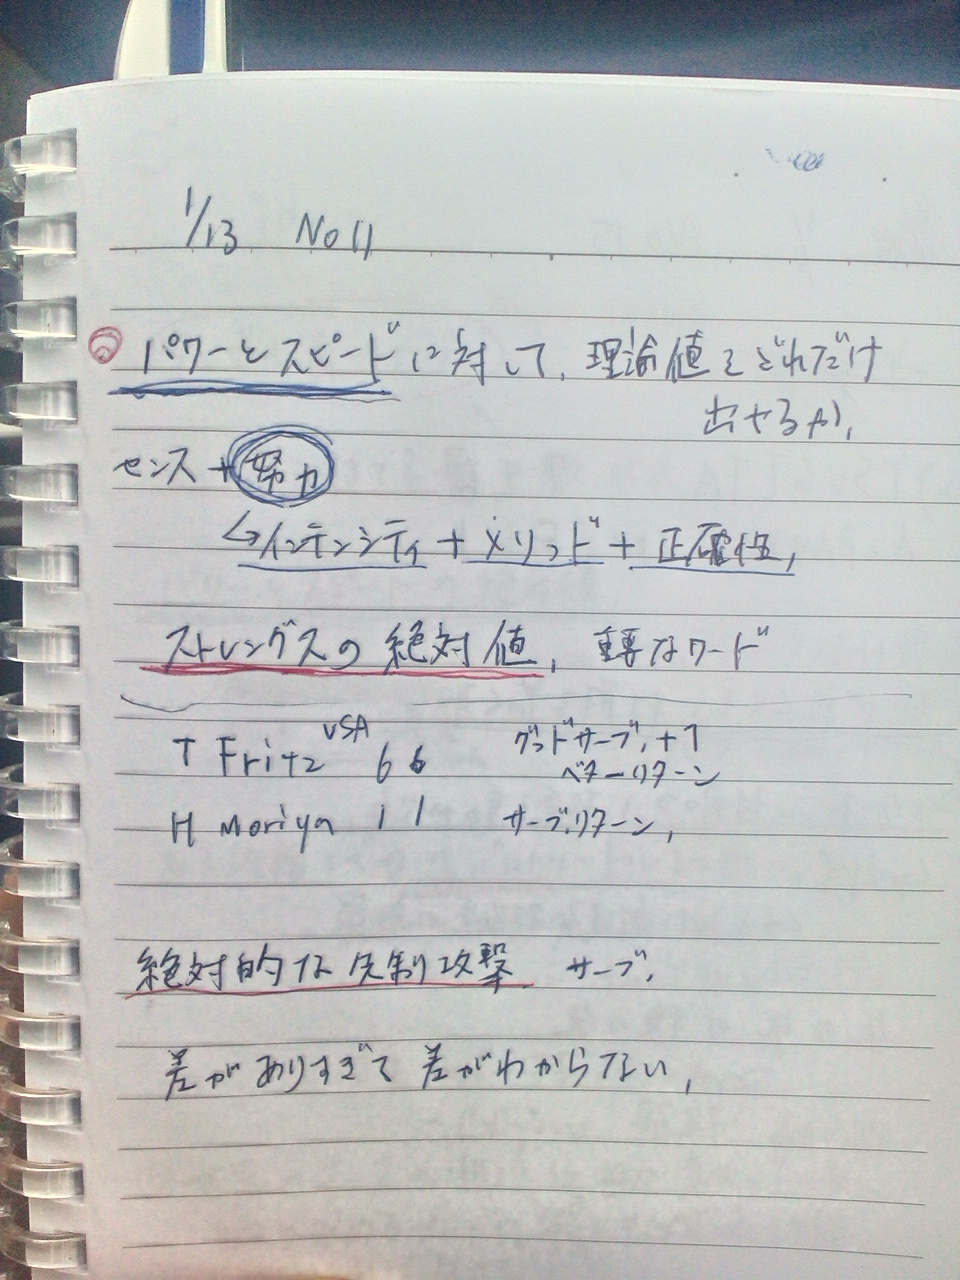 1/13 No 11
◎ パワーとスピードに対して、理論値をどれだけ
出せるか、
センス+努力
↳インテンシティ+メソッド+正確性、
ストレングスの絶対値、重要なワード
T Fritz USA 6 6 グッドサーブ、+1
ベターリターン
H Moriya 1 1 サーブ、リターン、
絶対的な先制攻撃 サーブ、
差がありすぎて差がわからない、